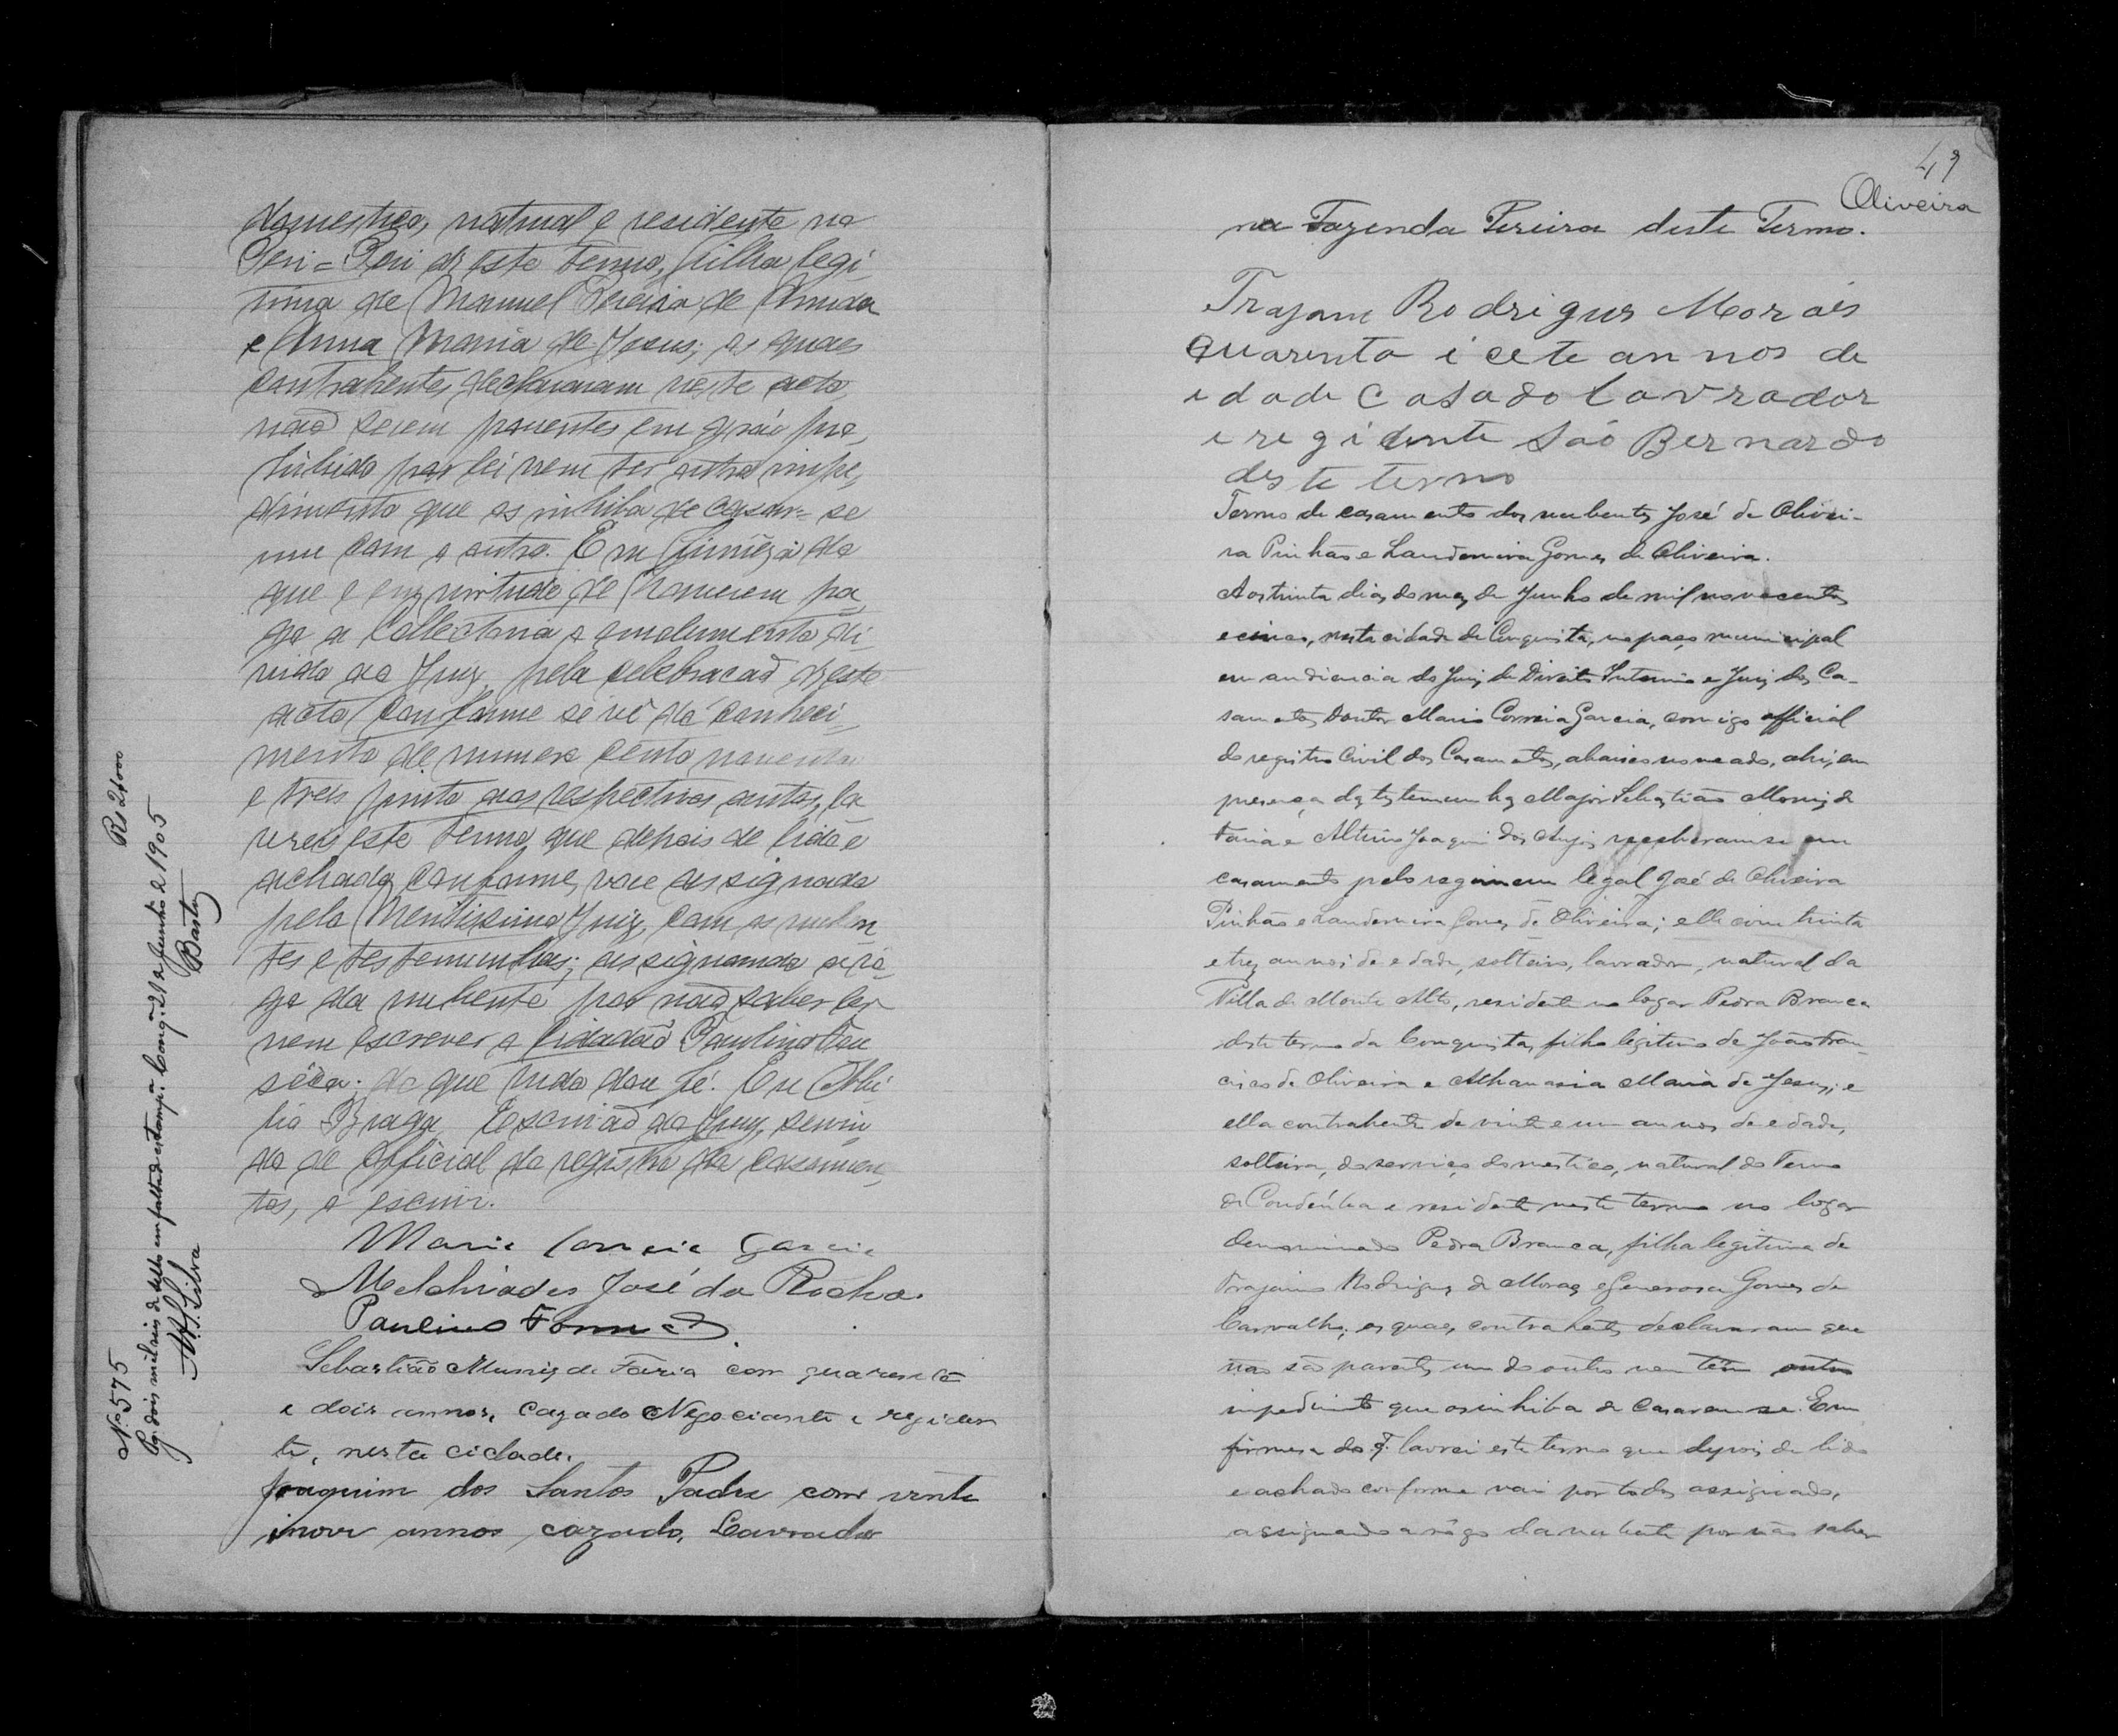 domestico, natural e residente no
Peri=Peri d'este termo, filha legi-
tima de Manuel Pereira de Arruda
e Anna Maria de Jesus; os quaes
contrahentes declararam neste acto
não serem parentes em gráu pro-
hibido por lei nem ter outro impe-
dimento que os inhiba de casar-se
um com o outro. Em firmeza do
que e em virtude de haverem pa-
go a Collectoria o emolumento de-
vido ao Juiz pela celebração d'este
acto conforme se vê do conheci-
mento de numero cento noventa
e treis junto aos respectivos autos, la
vrei este termo que depois de lido e
achado conforme, vae assignado
pelo Meritissimo Juiz, com os nuben
tes e testemunhas; assignando a rô-
go da nubente por não saber ler
nem escrever o cidadão Paulino Fon
sêca: do que tudo dou fé. Eu Abi-
lio Braga Escrivão do Juiz, servin
do de official do registro de casamen
tos, o escrevi.
Mario Correia Garcia
Melchiades José da Rocha.
Paulino Fonseca
Sebastião Muniz de Faria com quarenta
e dois annos, cazado Negociante e regiden
te, nesta cidade.
Joaquim dos Santos Padre com vinte
inove annos cazado, Lavrador
Nº 575
Rs 2$000
Pg. dois mil reis de sello em falta de estampª. Conqª. 21 de Junho de 1905
A. F. Silva
Bastos
49
Oliveira
na Fazenda Pereira deste Termo.
Trajano Rodrigues Moraes
quarenta i cete annos de
idade casado lavrador
e regidente São Bernardo
deste termo
Termo de casamento dos nubentes José de Olivei-
ra Pinhão e Laudemira Gomes de Oliveira.
Aos trinta dias do mez de Junho de mil novecentos
e cinco, nesta cidade de Conquista, no paço municipal
em audiencia do Juiz de Direito Interino e Juiz dos Ca-
samentos Doutor Mario Correia Garcia, comigo official
do registro Civil dos Casamentos, abaixo nomeado, ahi, em
presença das testemunhas Major Sebastião Moniz de
Faria e Altino Joaquim dos Anjos receberam-se em
casamento pelo regimem legal José de Oliveira
Pinhão e Laudemira Gomes de Oliveira; elle com trinta
e trez annos de edade, solteiro, lavrador, natural da
Villa de Monte Alto, residente no logar Pedra Branca
deste termo da Conquista, filho legitimo de João Fran-
cisco de Oliveira e Athanasia Maria de Jesus; e
ella contrahente de vinte e um annos de edade,
solteira, do serviço domestico, natural do Termo
de Condeúba e residente neste termo no logar
denominado Pedra Branca, filha legitima de
Trajano Rodrigues de Moraes e Generosa Gomes de
Carvalho; os quaes contrahentes declararam que
não são parentes um do outro nem têm outro
impedimento que os inhiba de casarem-se. Em
firmesa do q. lavrei este termo que depois de lido
e achado conforme vai por todos assignado,
assignando a rôgo da nubente por não saber